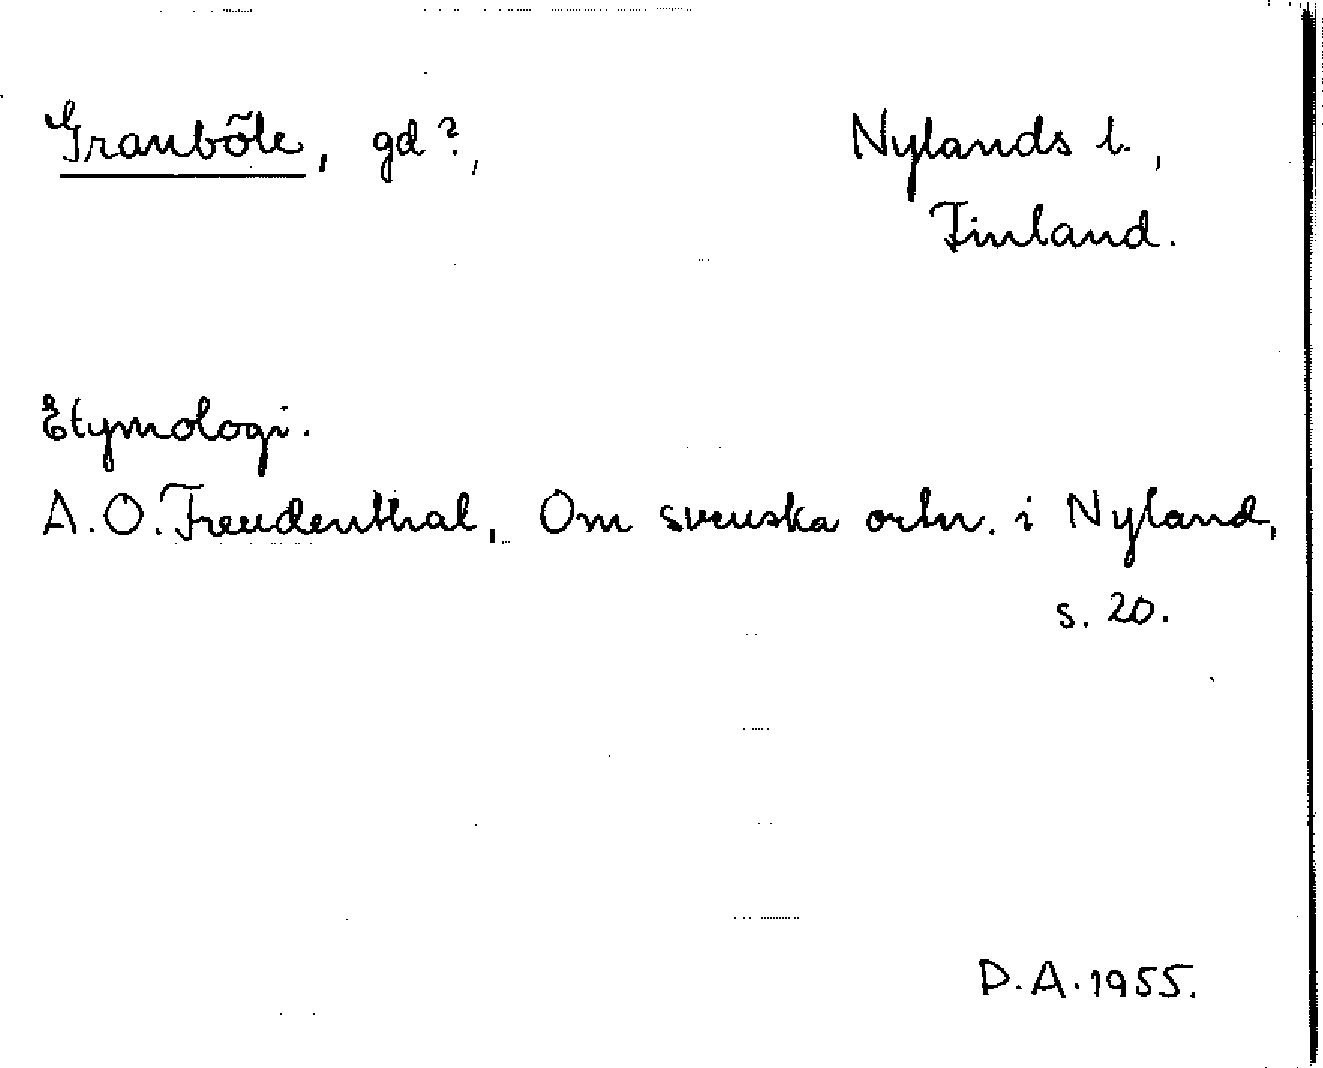 Granböle, gd?, Nylands l.,
Finland.
Etymologi.
A.O. Freudenthal, Om svenska ortn. i Nyland,
s. 20.
D.A. 1955.